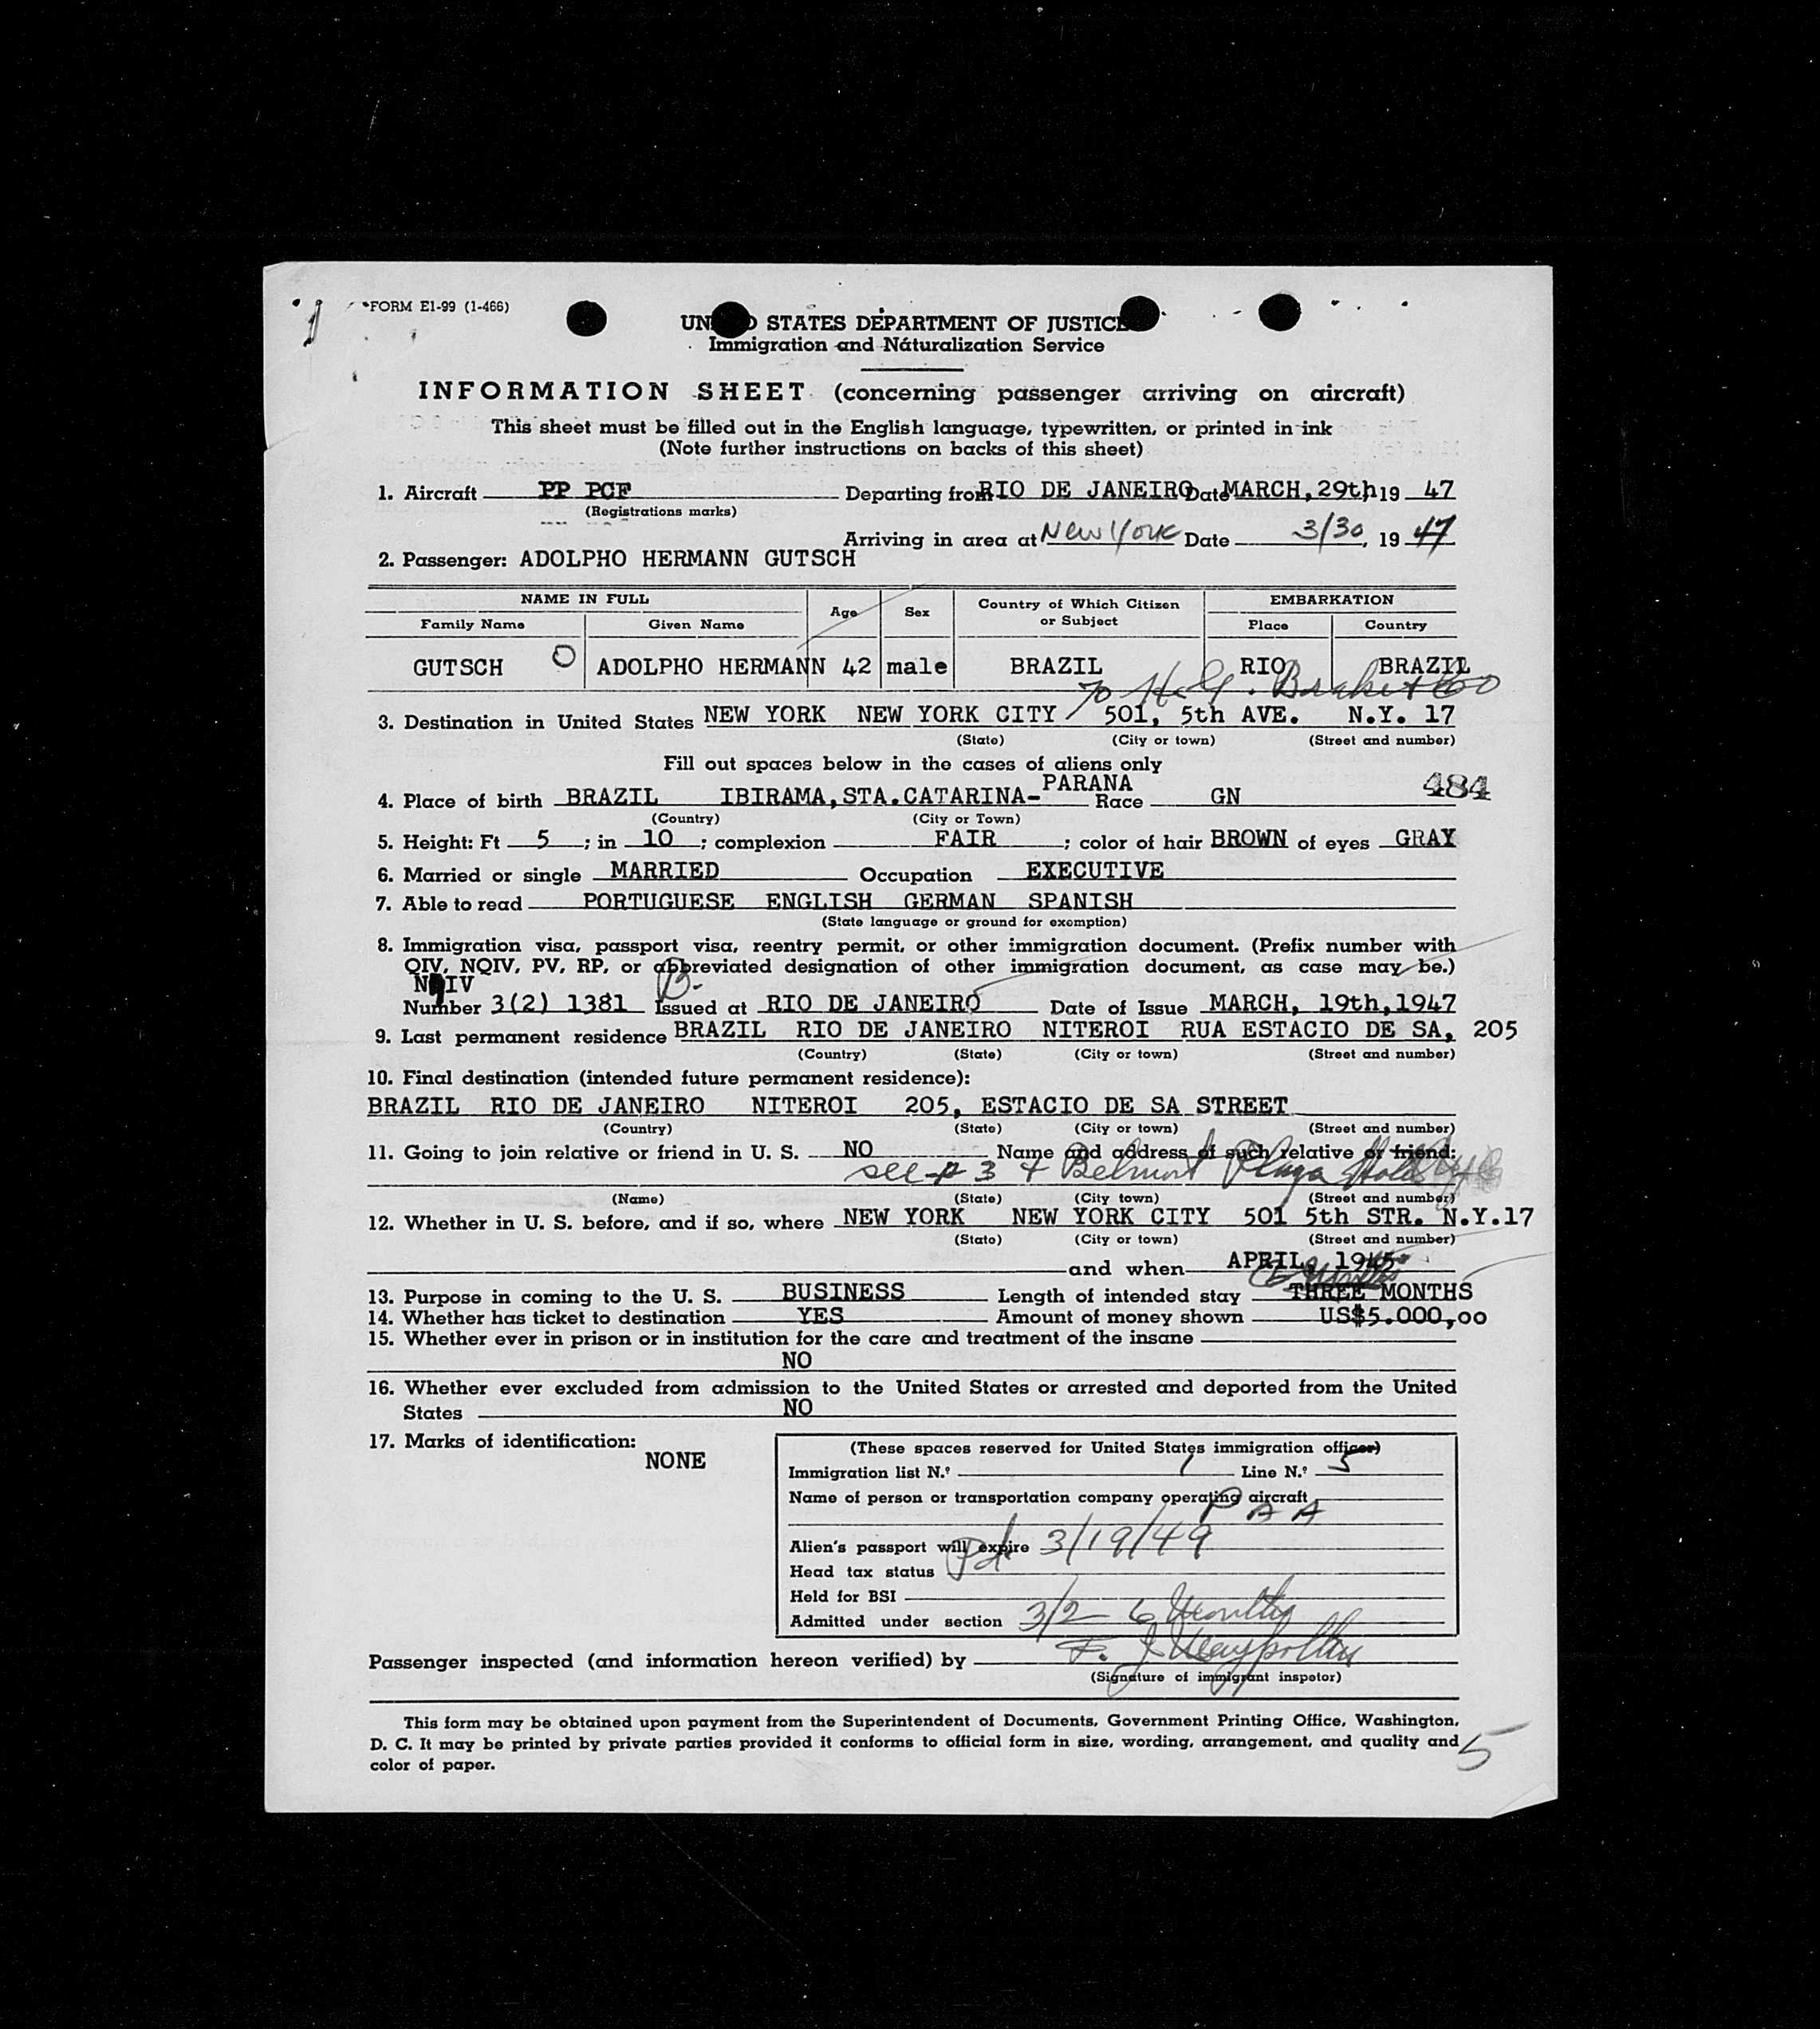 FORM E1-99 (1-466)
UN D STATES DEPARTMENT OF JUSTICE
Immigration and Náturalization Service
INFORMATION SHEET (concerning passenger arriving on aircraft)
This sheet must be filled out in the English language, typewritten, or printed in ink
(Note further instructions on backs of this sheet)
1. Aircraft PP PCF Departing from RIO DE JANEIRO Date MARCH, 29th, 19 47
(Registrations marks)
Arriving in area at New York Date 3/30, 19 47
2. Passenger: ADOLPHO HERMANN GUTSCH
NAME IN FULL Age Sex Country of Which Citizen or Subject EMBARKATION
Family Name Given Name Place Country
GUTSCH O ADOLPHO HERMANN 42 male BRAZIL RIO BRAZIL
3. Destination in United States NEW YORK NEW YORK CITY 501, 5th AVE. N.Y. 17
(State) (City or town) (Street and number)
Fill out spaces below in the cases of aliens only
4. Place of birth BRAZIL IBIRAMA, STA. CATARINA- PARANA Race GN 484
(Country) (City or Town)
5. Height: Ft 5 ; in 10 ; complexion FAIR ; color of hair BROWN of eyes GRAY
6. Married or single MARRIED Occupation EXECUTIVE
7. Able to read PORTUGUESE ENGLISH GERMAN SPANISH
(State language or ground for exemption)
8. Immigration visa, passport visa, reentry permit, or other immigration document. (Prefix number with
QIV, NQIV, PV, RP, or abbreviated designation of other immigration document, as case may be.)
Number 3(2) 1381 B. Issued at RIO DE JANEIRO Date of Issue MARCH, 19th, 1947
9. Last permanent residence BRAZIL RIO DE JANEIRO NITEROI RUA ESTACIO DE SA, 205
(Country) (State) (City or town) (Street and number)
10. Final destination (intended future permanent residence):
BRAZIL RIO DE JANEIRO NITEROI 205, ESTACIO DE SA STREET
(Country) (State) (City or town) (Street and number)
11. Going to join relative or friend in U. S. NO Name and address of such relative or friend:
see # 3 + Belmont Plaza Hotel
(Name) (State) (City town) (Street and number)
12. Whether in U. S. before, and if so, where NEW YORK NEW YORK CITY 501 5th STR. N.Y.17
(State) (City or town) (Street and number)
and when APRIL, 1945
13. Purpose in coming to the U. S. BUSINESS Length of intended stay THREE MONTHS
14. Whether has ticket to destination YES Amount of money shown US$5.000,oo
15. Whether ever in prison or in institution for the care and treatment of the insane
NO
16. Whether ever excluded from admission to the United States or arrested and deported from the United
States NO
17. Marks of identification:
NONE
(These spaces reserved for United States immigration officer)
Immigration list N.º 1 Line N.º 5
Name of person or transportation company operating aircraft
P A A
Alien's passport will expire 3/19/49
Head tax status Pd
Held for BSI
Admitted under section 3/2 - 6 Months
Passenger inspected (and information hereon verified) by
(Signature of immigrant inspetor)
This form may be obtained upon payment from the Superintendent of Documents, Government Printing Office, Washington,
D. C. It may be printed by private parties provided it conforms to official form in size, wording, arrangement, and quality and
color of paper.
5